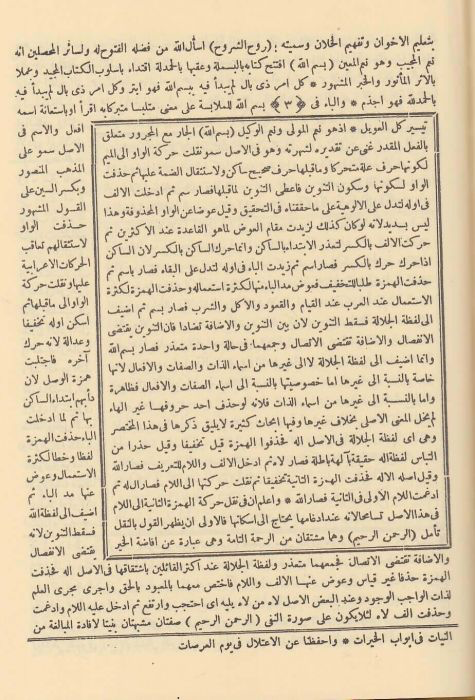 بتعليم الاخوان وتفهيم الخلان وسميته (روح الشروح) اسأل الله من فضله الفتوح له ولسائر المحصلين انه
نعم المجيب وهو نعم المعين (بسم الله) افتتح كتابه بالبسملة وعقبها بالحمدلة اقتداء باسلوب الكتاب المجيد وعملا
بالاثر المأثور والخبر المشهور * كل امر ذى بال لم يبدأ فيه ببسم الله فهو ابتر وكل امر ذى بال لم يبدأ فيه
بالحمدلله فهو اجذم * والباء فى ﴿٣﴾ بسم الله للملابسة على معنى متلبسا متبركا به اقرأ اوباستعانة اسمه
افعل والاسم فى
الاصل سمو على
المذهب المنصور
وبكسر السين على
القول المشهور
حذفت الواو
لاستثقالهم تعاقب
الحركات الاعرابية
عليها ونقلت حركة
الواو الى ماقبلها ثم
اسكن اوله تخفيفا
وعدالة لانه حرك
آخره فاجتلبت
همزة الوصل لان
دأبهم ابتداء الساكن
بها ثم لما ادخلت
الباء حذفت الهمزة
لفظا وخطا لكثرة
الاستعمال وعوض
عنها مد الباء ثم
اضيف الى لفظة الله
فسقط التنوين لانه
يقتضى الانفصال
والاضافة تقتضى الاتصال فجمعهما متعذر ولفظة الجلالة عند اكثر القائلين باشتقاقها فى الاصل اله فحذفت
الهمزة حذفا غير قياس وعوض عنها الالف واللام فاختص معهما بالمعبود بالحق واجرى مجرى العلم
لذات الواجب الوجود وعند البعض الاصل لاه من لاه يليه اى احتجب وارتفع ثم ادخل عليه اللام وادغمت
وحذفت الف لاه لئلا يكون على صورة النفى (الرحمن الرحيم) صفتان مشبهتان بنيتا لافادة المبالغة من
تيسير كل العويل * اذهو نعم المولى ونعم الوكيل (بسم الله) الجار مع المجرور متعلق
بالفعل المقدر غنى عن تقديره لشهرته وهو فى الاصل سمو نقلت حركة الواو الى الميم
لكونها حرف علة متحركا وماقبلها حرف صحيح ساكن ولاستثقال الضمة عليها ثم حذفت
الواو لسكونها وسكون التنوين فاعطى التنوين لماقبلها فصار سم ثم ادخلت الالف
فى اوله لتدل على الالوهية على ماحققناه فى التحقيق وقيل عوضا عن الواو المحذوفة وهذا
ليس بسديد لانه لو كان كذلك لزيدت مقام العوض لما هو القاعدة عند الاكثرين ثم
حركت الالف بالكسر لتعذر الابتداء بالساكن وانما حرك الساكن بالكسر لان الساكن
اذا حرك حرك بالكسر فصار اسم ثم زيدت الباء فى اوله لتدل على البقاء فصار باسم ثم
حذفت الهمزة طلبا للتخفيف فعوض مد الباء منها لكثرة استعماله وحذفت الهمزة لكثرة
الاستعمال عند العرب عند القيام والقعود والاكل والشرب فصار بسم ثم اضيف
الى لفظة الجلالة فسقط التنوين لان بين التنوين والاضافة تضادا فان التنوين يقتضى
الانفصال والاضافة تقتضى الاتصال وجمعهما فى حالة واحدة متعذر فصار بسم الله
وانما اضيف الى لفظة الجلالة لا الى غيرها من اسماء الذات والصفات والافعال لانها
خاصة بالنسبة الى غيرها اما خصوصيتها بالنسبة الى اسماء الصفات والافعال فظاهرة
واما بالنسبة الى غيرها من اسماء الذات فلانه لو حذف احد حروفها غير الهاء
لم يخل المعنى الاصلى بخلاف غيرها وفيها ابحاث كثيرة لايليق ذكرها فى هذا المختصر
وهى اى لفظة الجلالة فى الاصل اله فحذفوا الهمزة قيل تخفيفا وقيل حذرا من
التباس لفظة اله حقيقة بآلهة باطلة فصار لاه ثم ادخل الالف واللام للتعريف فصار الله
وقيل اصله الاله فحذفت الهمزة الثانية تخفيفا ثم نقلت حركتها الى اللام فصار الله ثم
ادغمت اللام الاولى فى الثانية فصار الله * واعلم ان فى نقل حركة الهمزة الثانية الى اللام
فى هذا الاصل تسامحا لانه عند ادغامها يحتاج الى اسكانها فالاولى ان يظهر القول بالنقل
تأمل (الرحمن الرحيم) وهما مشتقان من الرحمة التامة وهى عبارة عن افاضة الخير
النيات فى ابواب الخيرات * واحفظنا عن الاعتلال فى يوم العرصات